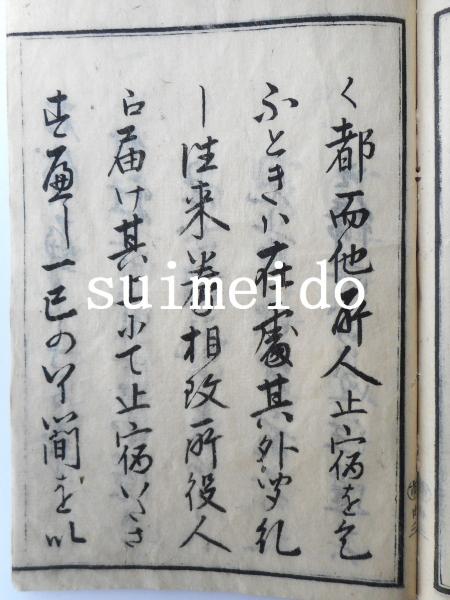 く都而他所人止宿を乞
ふときハ在處其外聞糺
し往来巻相改所役人
江届け其上にて止宿いたさ
すへし一己の了簡を以
suimeido